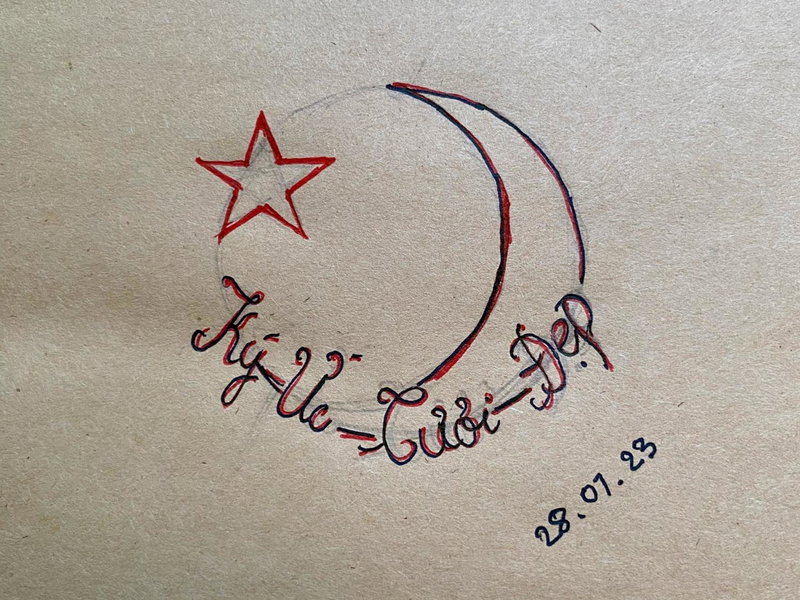 Ký-Ức-Tươi-Đẹp
28.07.23